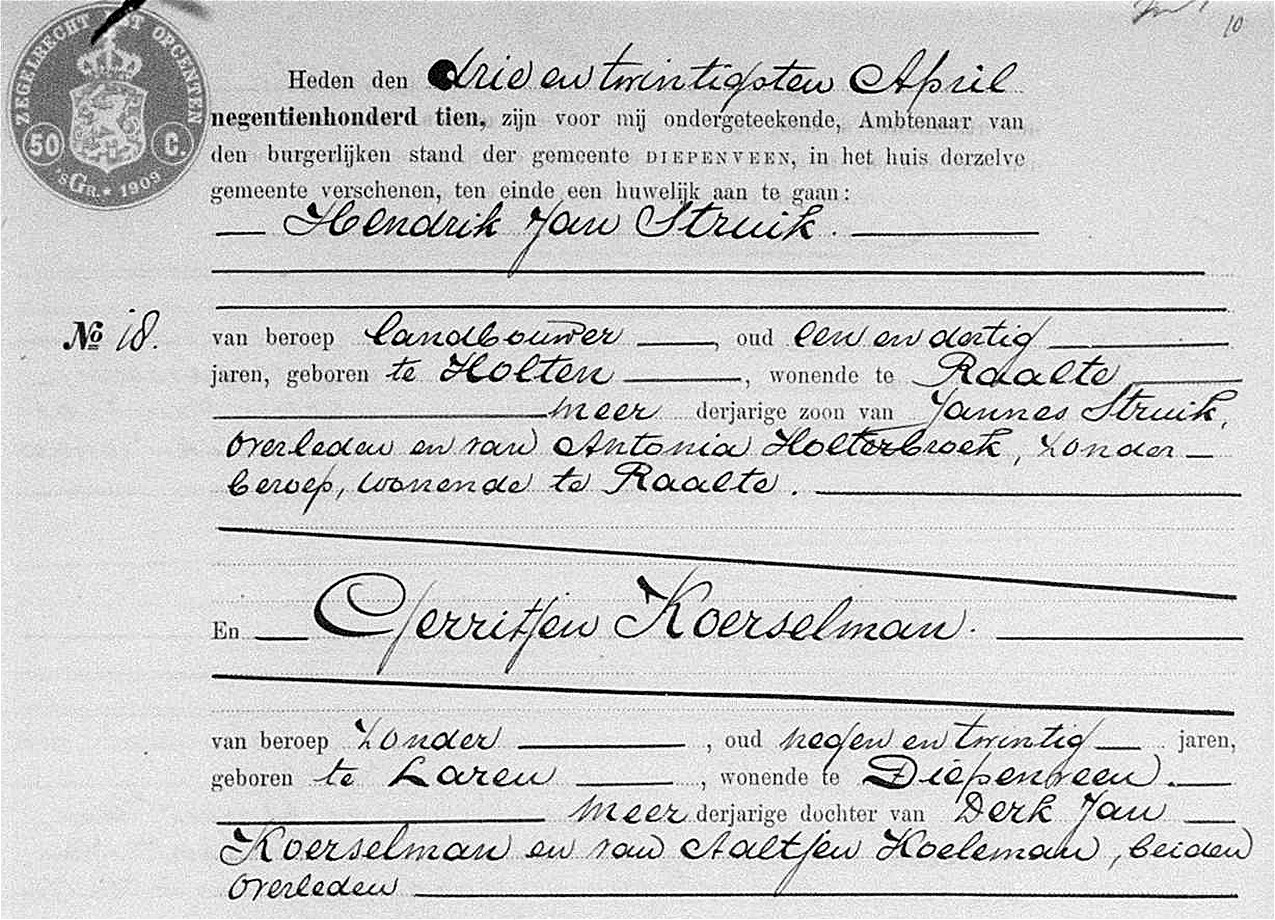 10
ZEGELRECHT MET OPCENTEN
50 C.
'sGR. * 1909
Heden den drie en twintigsten April
negentienhonderd tien, zijn voor mij ondergeteekende, Ambtenaar van
den burgerlijken stand der gemeente DIEPENVEEN, in het huis derzelve
gemeente verschenen, ten einde een huwelijk aan te gaan:
Hendrik Jan Struik.
No 18.
van beroep landbouwer, oud een en dertig
jaren, geboren te Holten, wonende te Raalte,
meer derjarige zoon van Jannes Struik,
overleden en van Antonia Holterbroek, zonder
beroep, wonende te Raalte.
En Gerritjen Koerselman.
van beroep zonder, oud negen en twintig jaren,
geboren te Laren, wonende te Diepenveen.
meer derjarige dochter van Derk Jan
Koerselman en van Aaltjen Koeleman, beiden
overleden